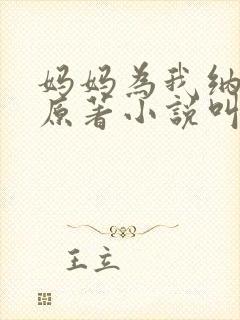 妈妈為我纳
原著小説叫
王立